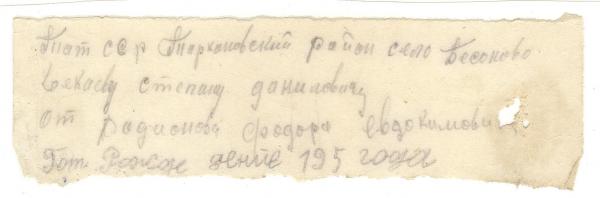 Тат сср Тархановский район село Бесоново
Бекаеву степану данилович
от Радионова Федора Евдокимович
Гот. Рожде ение 195 года